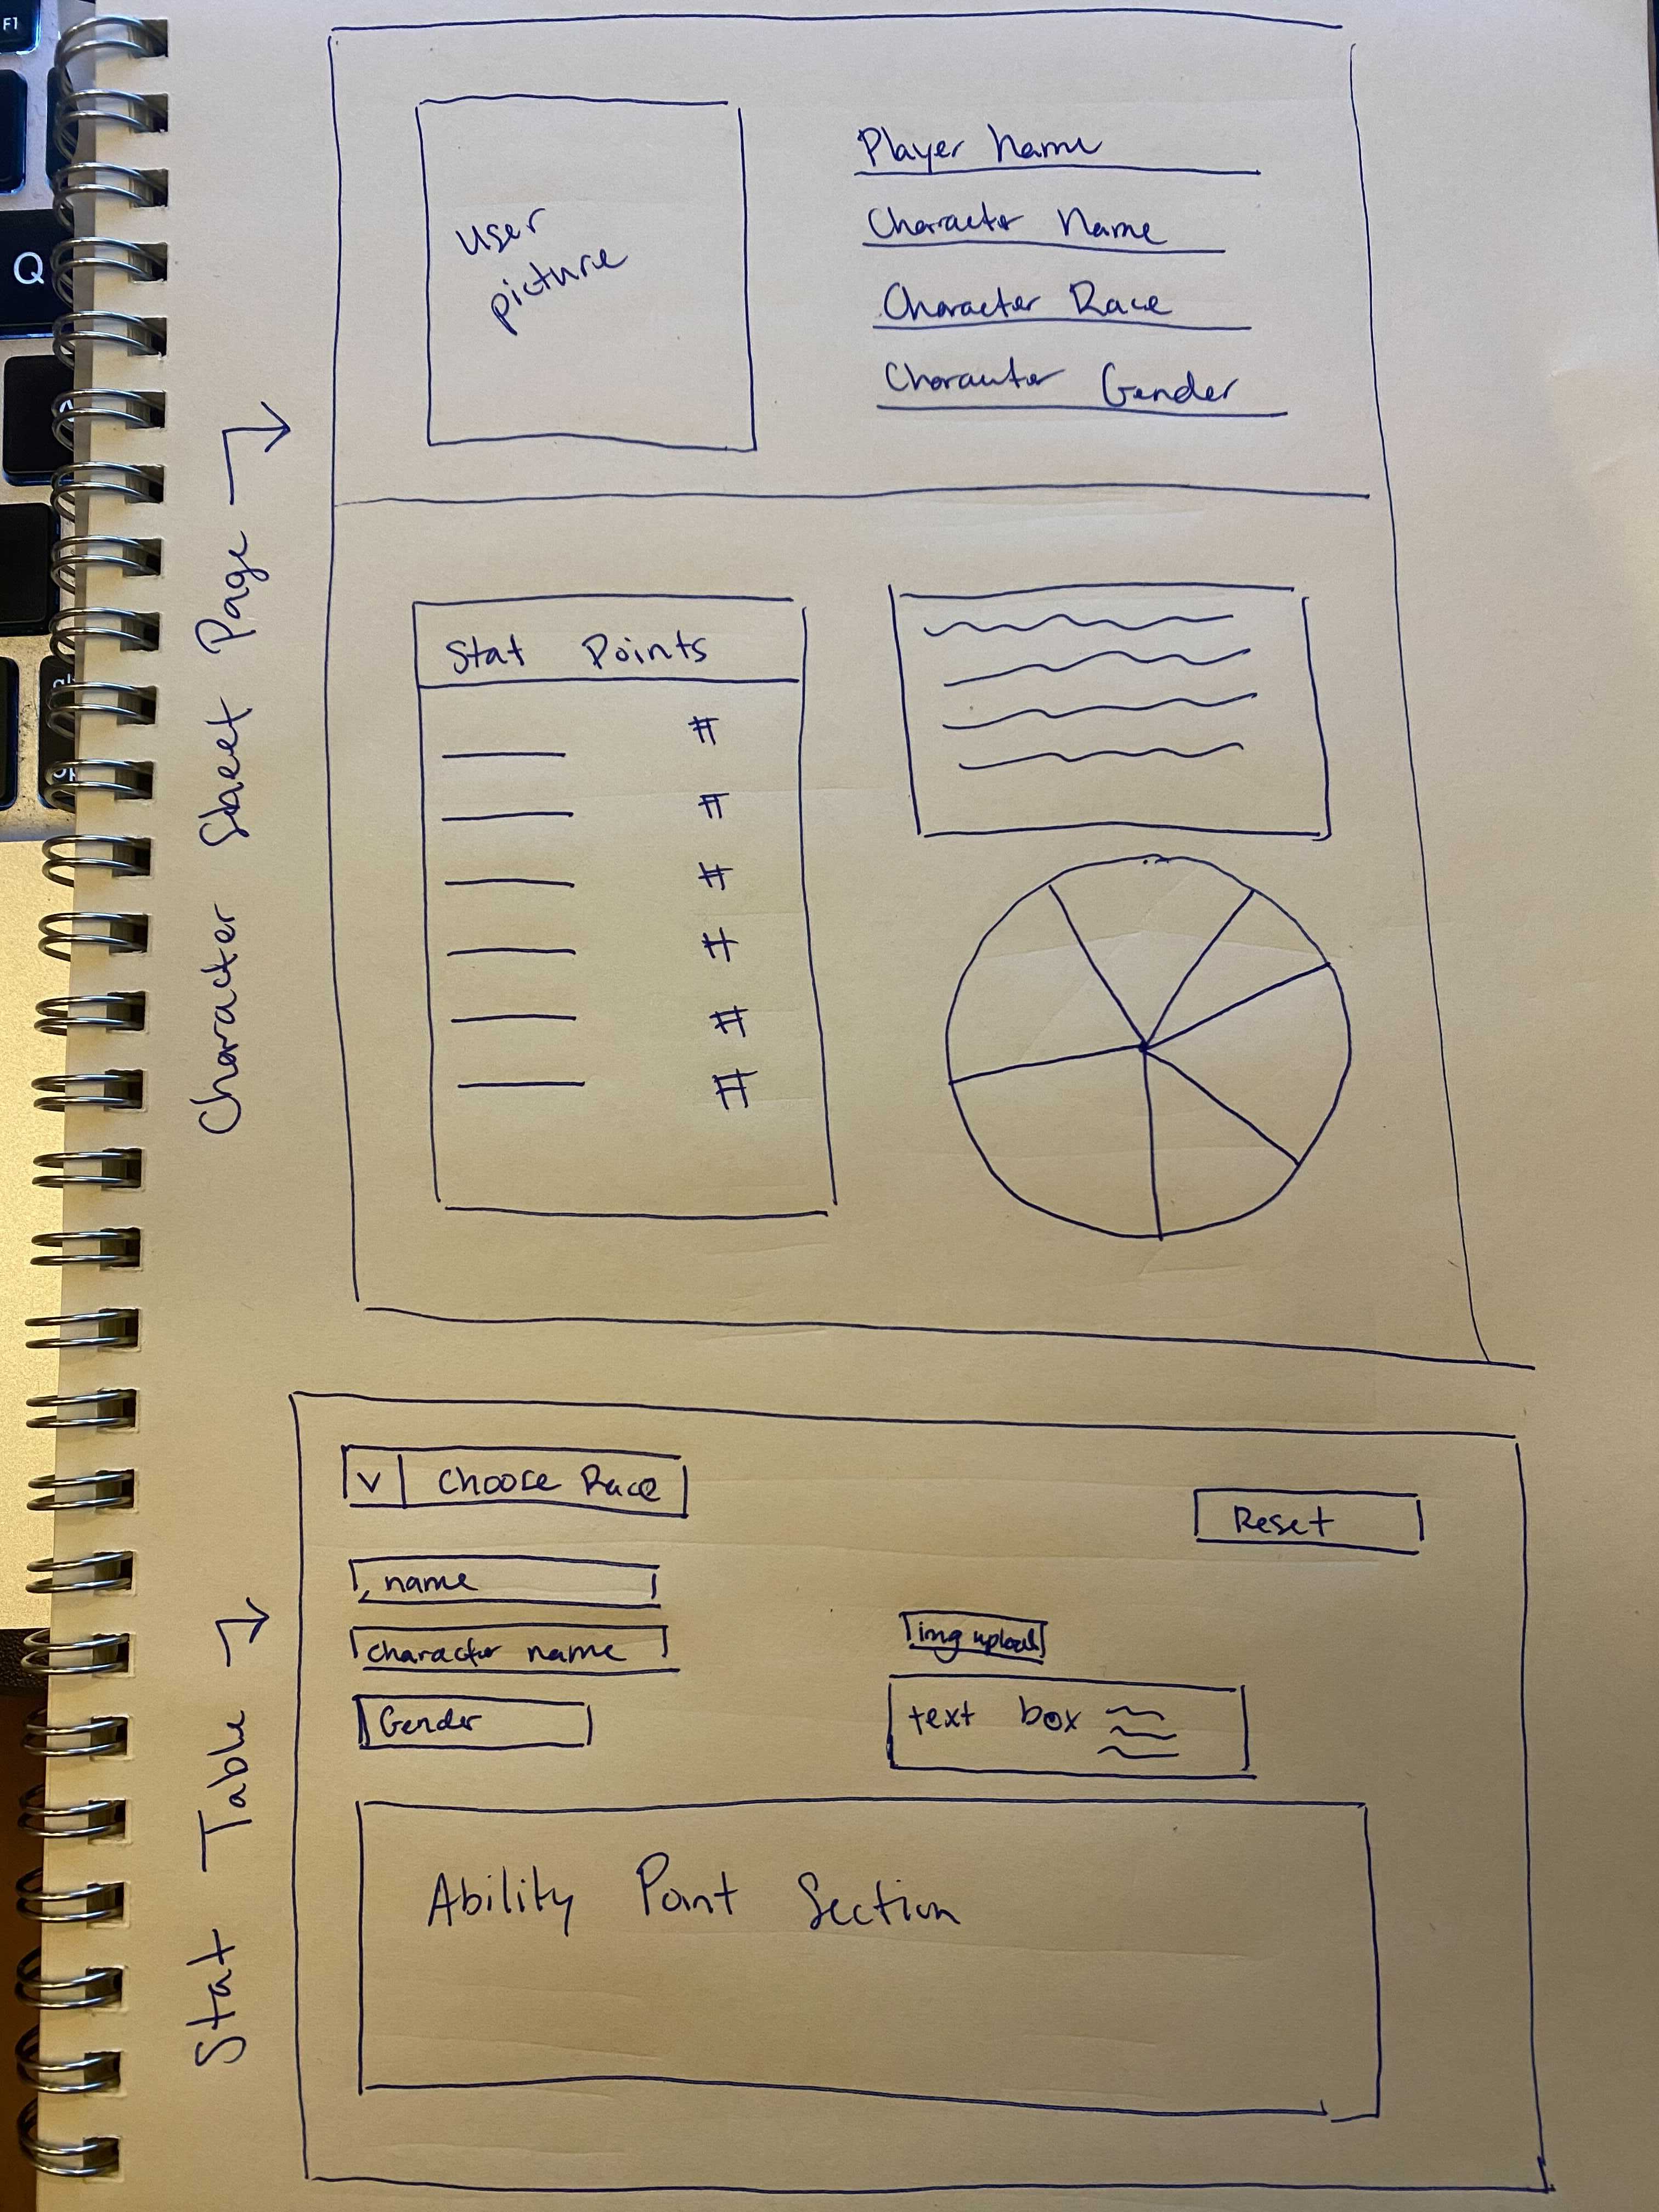 F1
Q
Character Sheet Page
User
picture
Player Name
Character Name
Character Race
Character Gender
Stat Points
#
#
#
#
#
#
Stat Table
V Choose Race
Reset
name
character name
Gender
img upload
text box
Ability Point Section